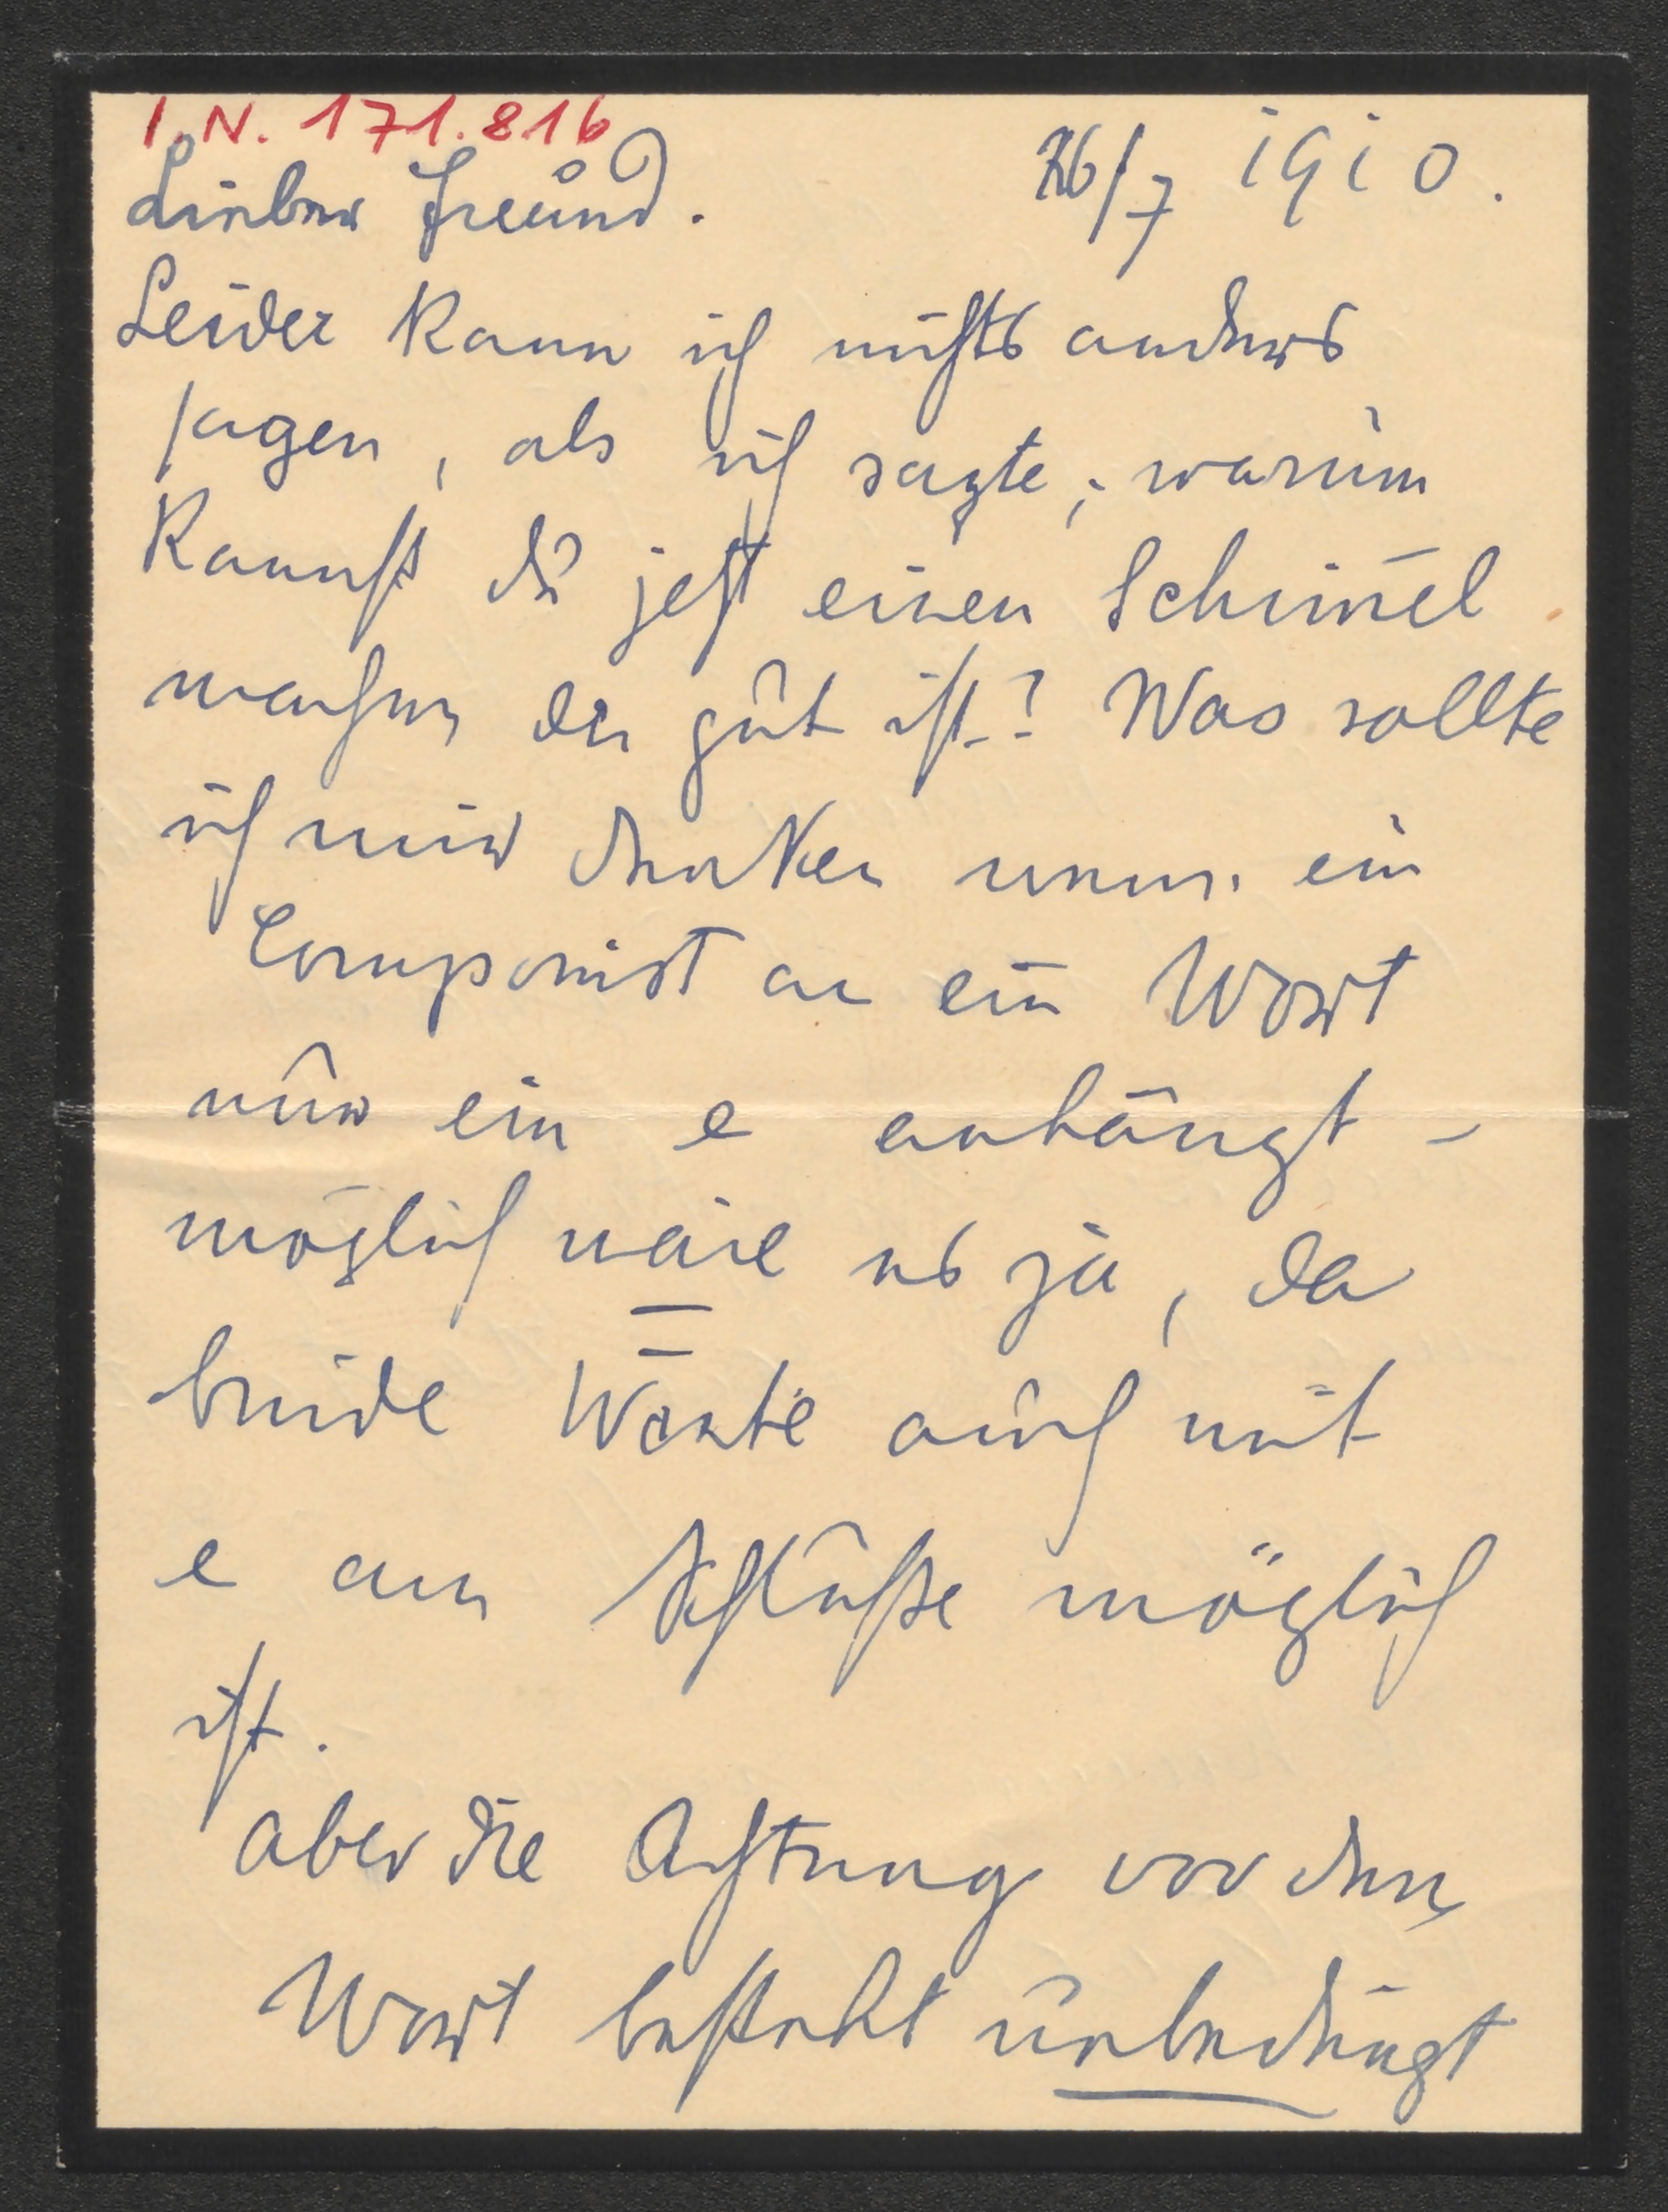 I.N. 171.816
Lieber Freund. 26/7 1910.
Leider kann ich nichts anders
sagen, als ich sagte; warum
kannst du jetzt einen Schimel
machen der gut ist? Was sollte
ich mir denken wenn ein
Componist an ein Wort
nur ein e anhängt -
möglich wäre es ja, da
beide Worte auch mit
e am Schluße möglich
ist.
Aber die Achtung vor dem
Wort besteht unbedingt